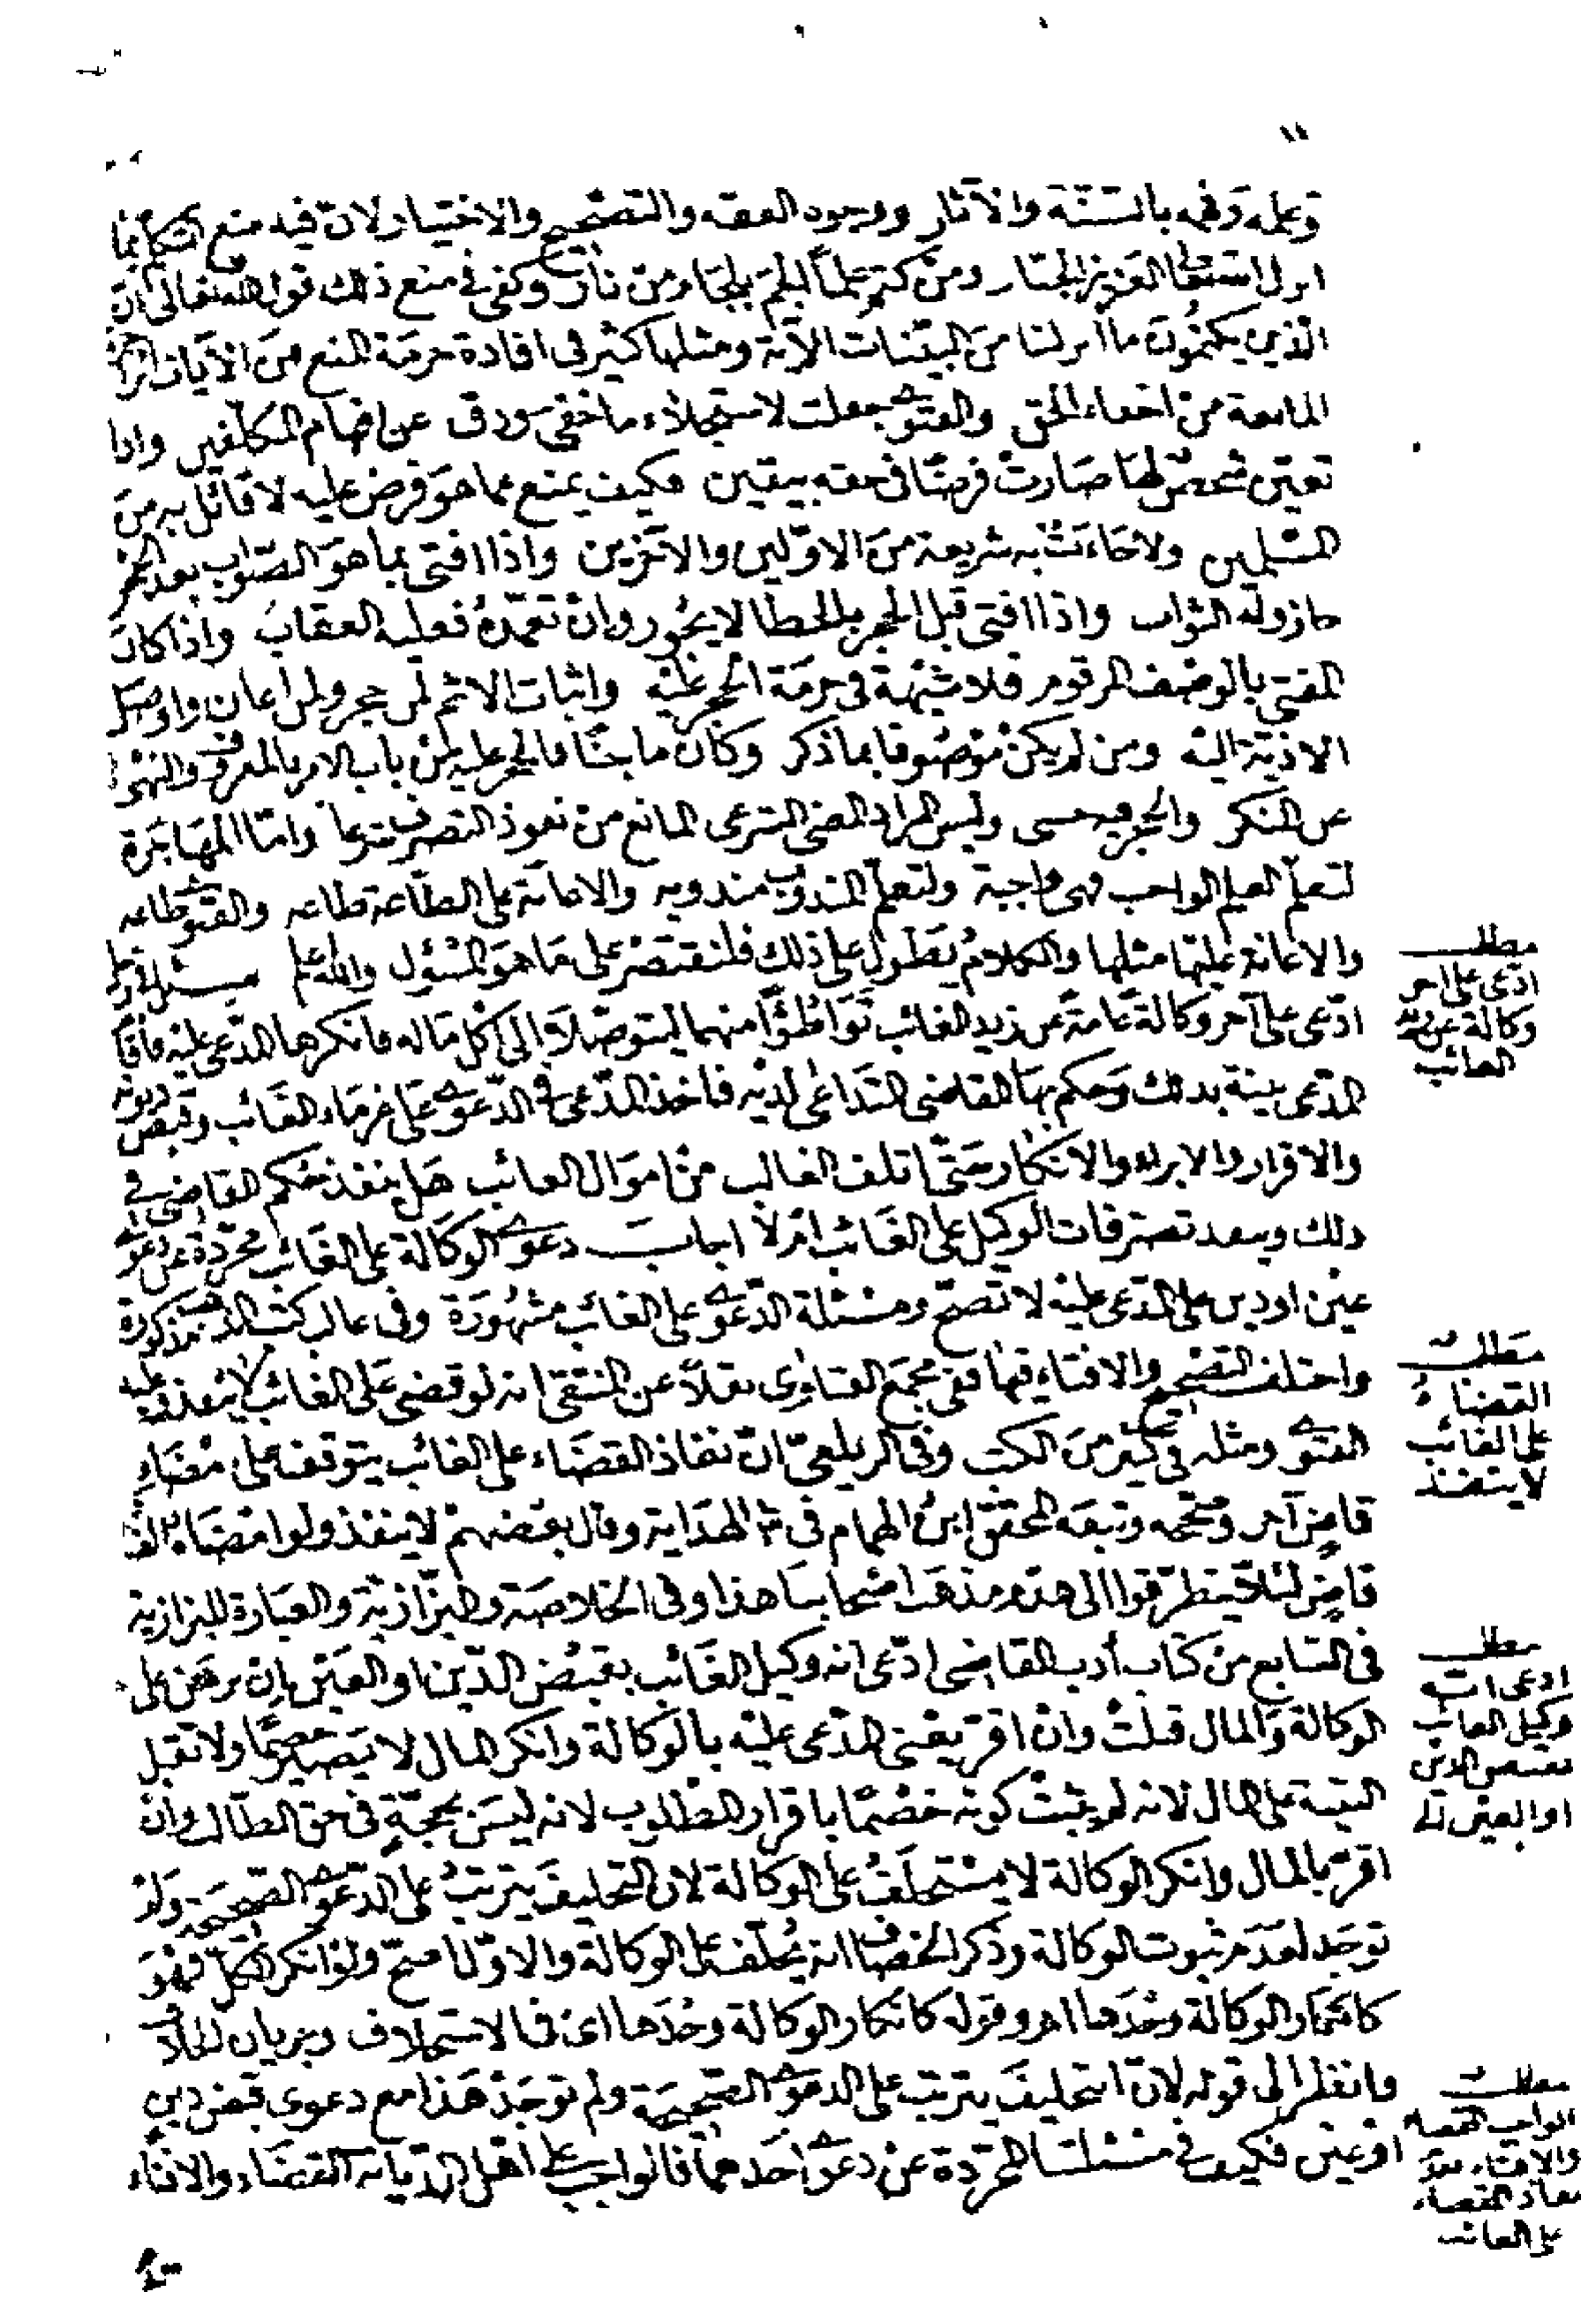 وعمله وفهمه بالسنة والآثار ووجود الفقه والتصحيح والاختيار لان فيه منع
العزيز الجبار ومن كتم علماً الجم بلجام من نار وكفى في منع ذلك قوله تعالى ان
الذين يكتمون ما انزلنا من البينات الآية ومثلها كثير في افادة حرمة المنع من الآيات
المانعة من اخفاء الحق والفتوى جعلت لاستجلاء ما خفي ودق عن افهام المكلفين واذا
تعين شخص لها صارت فرضاً في حقه بيقين فكيف يمنع مما هو فرض عليه لا قائل به من
المسلمين ولا جاءت به شريعة من الاولين والآخرين واذا افتى بما هو الصواب بعد الحجر
جاز وله الثواب واذا افتى قبل الحجر بالخطا لا يجوز وان تعمده فعليه العقاب واذا كان
المفتي بالوصف المرقوم فلا شبهة في حرمة الحجر عليه واثبات الاثم لمن حجر ولمن اعان واوصل
الاذية اليه ومن لم يكن موصوفا بما ذكر وكان ماجنا فالحجر عليه من باب الامر بالمعروف والنهي
عن المنكر والحجر فيه حسي وليس المراد المعنى الشرعي المانع من نفوذ التصرف شرعا واما المهاجرة
لتعلم العلم الواجب فهي واجبة ولتعلم المندوب مندوبة والاعانة على الطاعة طاعه والفتوى طاعه
والاعانة عليها مثلها والكلام يطول على ذلك فلنقتصر على ما هو المسؤل والله اعلم سئل
ادعى على آخر وكالة عامة عن زيد الغائب تواطئوا منهما ليتوصلا الى اكل ماله فانكرها المدعى عليه فاقام
المدعي بينة بذلك وحكم بها القاضي المتداعى لديه فاخذ المدعي في الدعوى على غرماء الغائب وقبض ديونه
والاقرار والابراء والانكار حتى اتلف الغالب من اموال الغائب هل ينفذ حكم القاضي في
ذلك وينفذ تصرفات الوكيل على الغائب ام لا اجاب دعوى الوكالة على الغائب مجردة عن دعوى
عين او دين على المدعى عليه لا تصح ومسئلة الدعوى على الغائب مشهورة وفي غالب كتب المذهب مذكورة
واختلف التصحيح والافتاء فيها ففي مجمع الفتاوى نقلاً عن المنتقى انه لو قضى على الغائب لا ينفذ وعليه
الفتوى ومثله في كثير من الكتب وفي الزيلعي ان نفاذ القضاء على الغائب يتوقف على امضاء
قاض آخر وصححه وتبعه المحقق ابن الهمام في شرح الهداية وقال بعضهم لا ينفذ ولو امضاه الف
قاض لئلا يتطرقوا الى هدم مذهب اصحابنا هذا وفي الخلاصة والبزازية والعبارة للبزازية
في السابع من كتاب ادب القاضي ادعى انه وكيل الغائب بقبض الدين او العين ان برهن على
الوكالة والمال قبلت وان اقر يعني المدعى عليه بالوكالة وانكر المال لا يصير خصما ولا تقبل
البينة على المال لانه لم يثبت كونه خصما باقرار المطلوب لانه ليس بحجة في حق الطالب وان
اقر بالمال وانكر الوكالة لا يستحلف على الوكالة لان التحليف يترتب على الدعوى الصحيحة ولم
توجد لعدم ثبوت الوكالة وذكر الخصاف انه يحلف على الوكالة والاول اصح ولو انكر الكل فهو
كانكار الوكالة وحدها اهـ وقوله كانكار الوكالة وحدها اى في الاستحلاف وجريان الخلاف
وانظر الى قوله لان التحليف يترتب على الدعوى الصحيحة ولم توجد هذا مع دعوى قبض دين
او عين فكيف في مسئلتنا المجردة عن دعوى احدهما فالواجب على اهل الديانة القضاء والافتاء
مطلب
ادعى على آخر
وكالة عن زيد
الغائب
مطلب
القضاء
على الغائب
لا ينفذ
مطلب
ادعى انه
وكيل الغائب
بقبض الدين
او العين
مطلب
الواجب القضاء
والافتاء بعدم
نفاذ القضاء
على الغائب